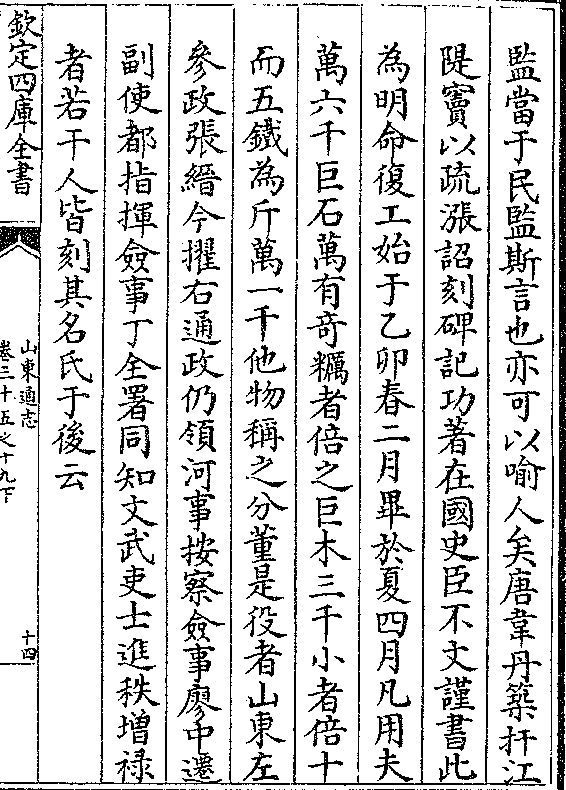 監當于民監斯言也亦可以喻人矣唐韋丹築扞江
隄竇以疏漲詔刻碑記功著在國史臣不文謹書此
為明命復工始于乙卯春二月畢於夏四月凡用夫
萬六千巨石萬有奇糲者倍之巨木三千小者倍十
而五鐵為斤萬一千他物稱之分董是役者山東左
參政張縉今擢右通政仍領河事按察僉事廖中遷
副使都指揮僉事丁全署同知文武吏士進秩增祿
者若干人皆刻其名氏于後云
欽定四庫全書
山東通志
卷三十五之十九下
十四